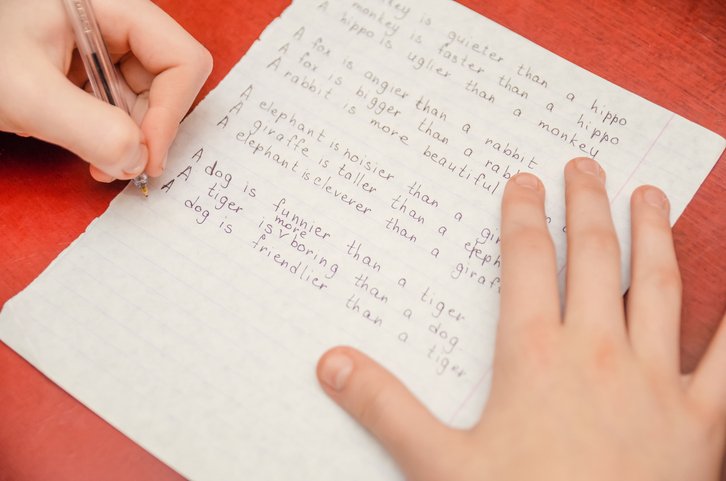 is quieter than a hippo
monkey is faster than a hippo
A hippo is uglier than a monkey
A fox is angier than a rabbit
A fox is bigger than a
A rabbit is more beautiful
A elephant is noisier than a
A giraffe is taller than a
A elephant is cleverer than a
A dog is funnier than a tiger
A tiger is more boring than a dog
A dog is friendlier than a tiger